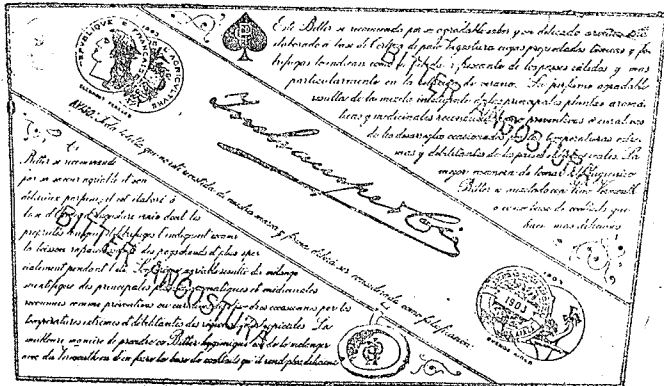 REPUBLIQUE FRANÇAISE
P
Este Bitter se recomienda por su agradable sabor y su delicado aroma. Está
elaborado a base de Corteza de palo Angostura cuyas propiedades tónicas y fe-
brífugas lo indican como la bebida refrescante de los países cálidos y mas
particularmente en la estación de verano. Su perfume agradable
resulta de la mezcla inteligente de las principales plantas aromá-
ticas y medicinales reconocidas como preventivas o curativas
de los desarreglos ocasionados por las temperaturas extre-
mas y debilitantes de las regiones tropicales. La
mejor manera de tomar el Higiénico
Bitter es mezclado con Vino Vermouth
o como base de cocktails que
hace mas deliciosos
BITTER ANGOSTURA
AVISO: Toda botella que no esté revestida de nuestra marca y firma deberá ser considerada como falsificación.
y Cia
Ce
Bitter se recommande
par sa saveur agréable et son
délicieux parfum, il est élaboré à
base d'Ecorce d'Angosture vraie dont les
propriétés toniques et fébrifuges l'indiquent comme
la boisson rafraichissante des pays chauds et plus spé-
cialement pendant l'été. Son arome agréable résulte du mélange
scientifique des principales plantes aromatiques et médicinales
reconnues comme préventives ou curatives des désordres occasionnés par les
températures extrêmes et débilitantes des régions tropicales. La
meilleure manière de prendre ce Bitter hygiénique est de le mélanger
avec du Vermouth ou d'en faire la base de cocktails qu'il rend plus délicieux
BITTER ANGOSTURA
1903
BUENOS AIRES